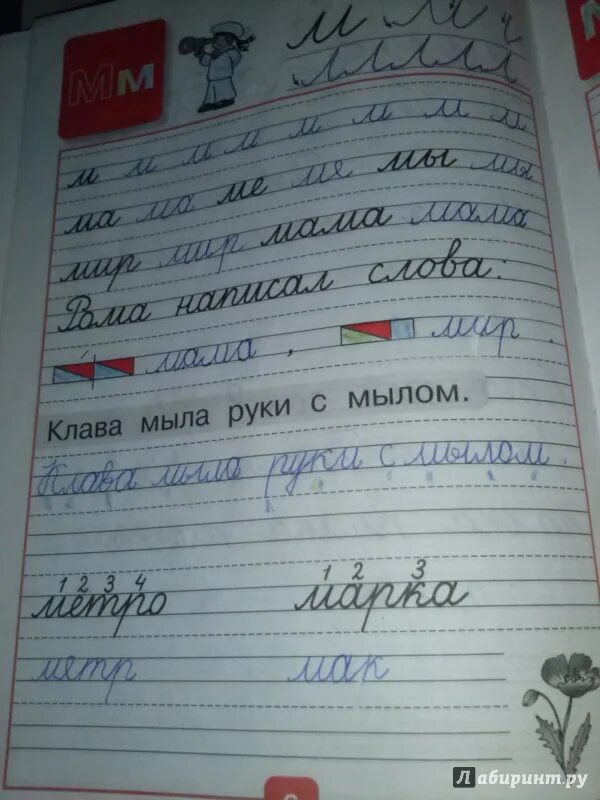 Мм м м ч
м м м м м м м м
ма ма ме ме мы мы
мир мир мама мама
Рома написал слова:
мама , мир .
Клава мыла руки с мылом.
Клава мыла руки с мылом.
1 2 3 4 1 2 3
метро марка
метр мак
Лабиринт.ру